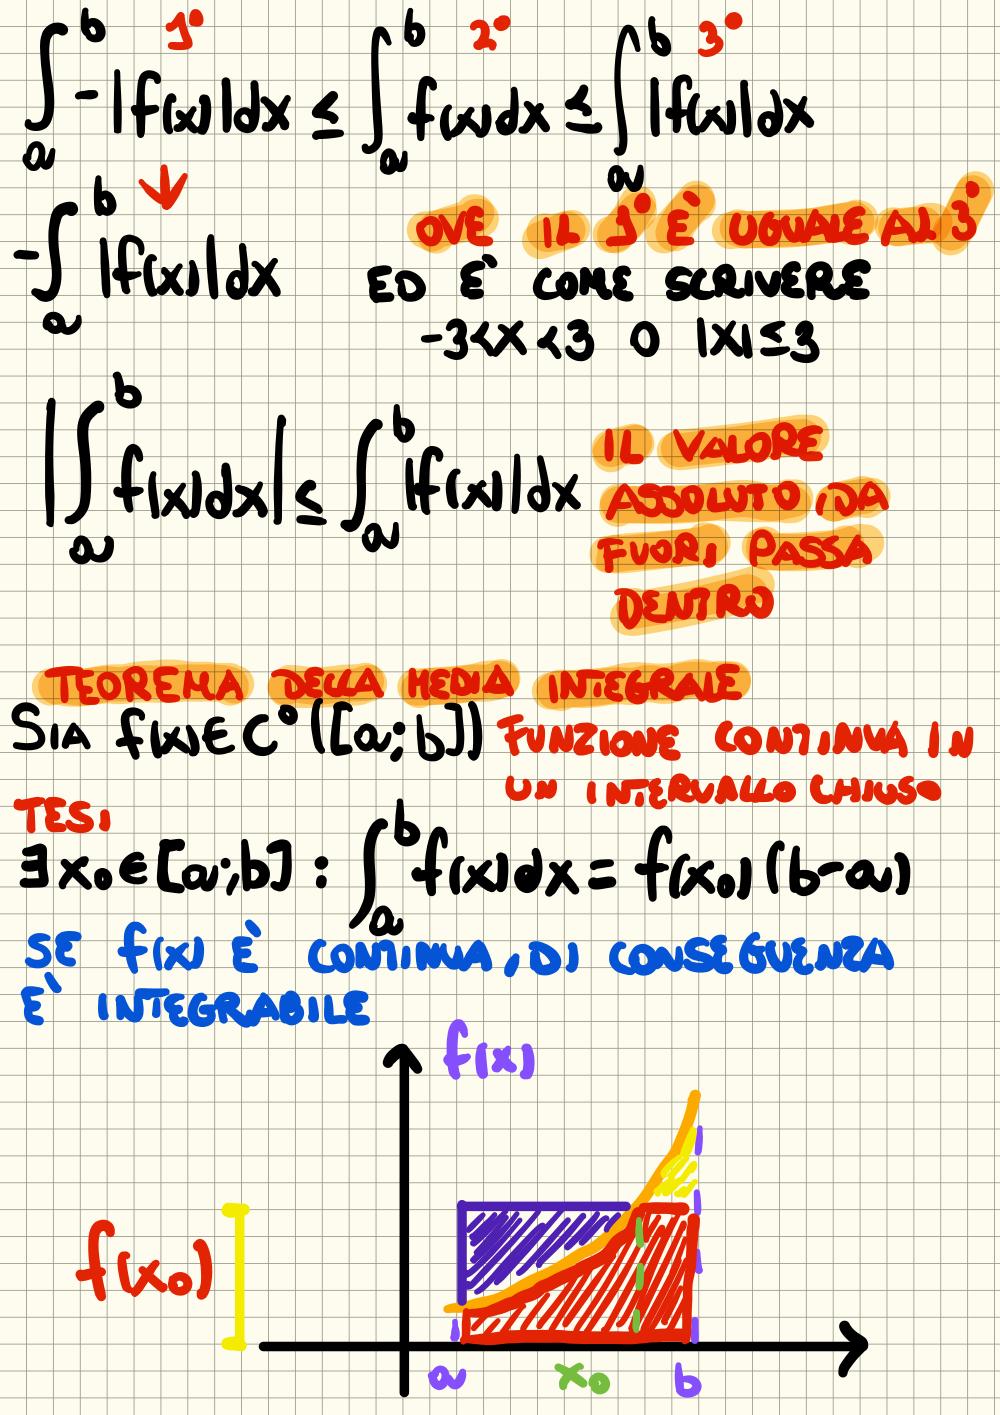 1° 2° 3°
∫_a^b -|f(x)|dx ≤ ∫_a^b f(x)dx ≤ ∫_a^b |f(x)|dx
-∫_a^b |f(x)|dx
OVE IL 1° È UGUALE AL 3°
ED È COME SCRIVERE
-3<x<3 O |x|≤3
|∫_a^b f(x)dx| ≤ ∫_a^b |f(x)|dx
IL VALORE
ASSOLUTO, DA
FUORI PASSA
DENTRO
TEOREMA DELLA MEDIA INTEGRALE
SIA f(x)∈C°([a;b]) FUNZIONE CONTINUA IN
UN INTERVALLO CHIUSO
TESI
∃ x₀∈[a;b] : ∫_a^b f(x)dx = f(x₀)(b-a)
SE f(x) È CONTINUA, DI CONSEGUENZA
È INTEGRABILE
f(x)
f(x₀)
a x₀ b